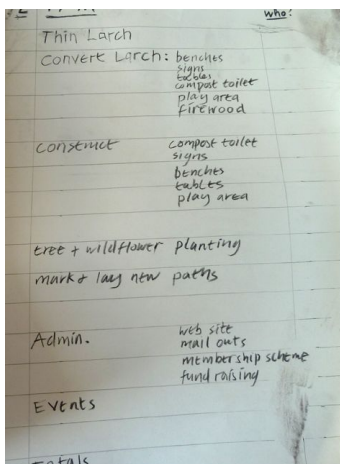 who?
Thin Larch
Convert Larch: benches
signs
tables
compost toilet
play area
firewood
construct compost toilet
signs
benches
tables
play area
tree + wildflower planting
mark + lay new paths
Admin. web site
mail outs
membership scheme
fund raising
Events
Totals